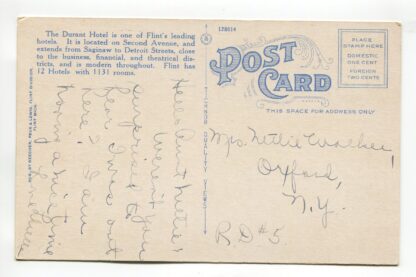 The Durant Hotel is one of Flint's leading
hotels. It is located on Second Avenue, and
extends from Saginaw to Detroit Streets, close
to the business, financial, and theatrical dis-
tricts, and is modern throughout. Flint has
12 Hotels with 1131 rooms.
Hello Aunt Nettie:
Weren't you
surprised to
hear I was out
here? I am
having a nice time
128614
POST
CARD
THIS SPACE FOR ADDRESS ONLY
PLACE
STAMP HERE
DOMESTIC
ONE CENT
FOREIGN
TWO CENTS
Mrs. Nettie
Oxford,
N.Y.
R.D #5